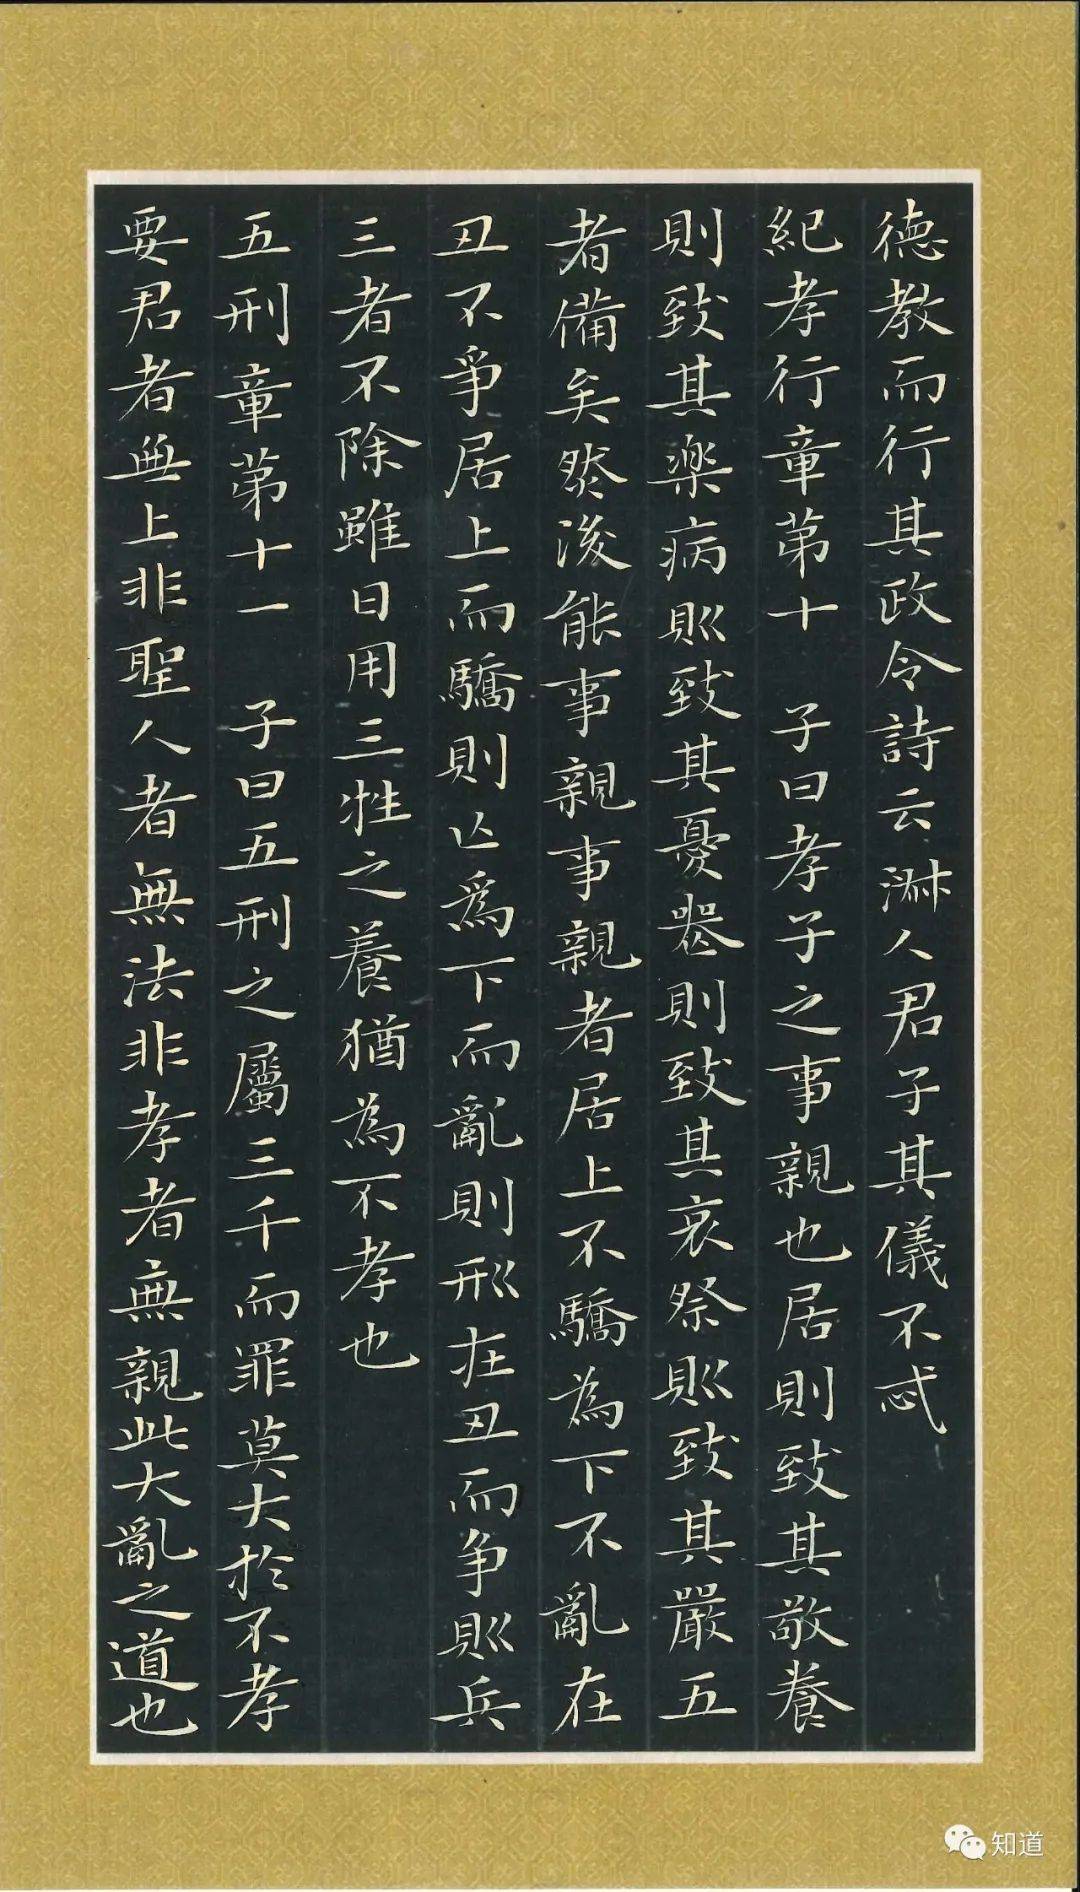 德教而行其政令詩云淋人君子其儀不忒
紀孝行章第十 子曰孝子之事親也居則致其敬養
則致其樂病則致其憂喪則致其哀祭則致其嚴五
者備矣然後能事親事親者居上不驕為下不亂在
丑不爭居上而驕則亡為下而亂則刑在丑而爭則兵
三者不除雖日用三牲之養猶為不孝也
五刑章第十一 子曰五刑之屬三千而罪莫大於不孝
要君者無上非聖人者無法非孝者無親此大亂之道也
知道